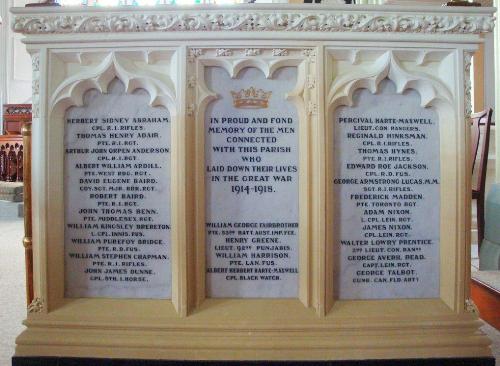 HERBERT SIDNEY ABRAHAM,
CPL. R.I. RIFLES.
THOMAS HENRY ADAIR.
PTE. R.I. RGT.
ARTHUR JOHN ORPEN ANDERSON.
CPL. R.I. RGT.
ALBERT WILLIAM ARDILL.
PTE. WEST RDG. RGT.
DAVID EUGENE BAIRD.
COY. SGT. MJR. BDR. RGT.
ROBERT BAIRD.
PTE. R.I. RGT.
JOHN THOMAS BENN.
PTE. MIDDLESEX. RGT.
WILLIAM KINGSLEY BRERETON.
L. CPL. INNIS. FUS.
WILLIAM PUREFOY BRIDGE.
PTE. R.D. FUS.
WILLIAM STEPHEN CHAPMAN.
PTE. R.I. RIFLES.
JOHN JAMES DUNNE.
CPL. 5TH. I. HORSE.
IN PROUD AND FOND
MEMORY OF THE MEN
CONNECTED
WITH THIS PARISH
WHO
LAID DOWN THEIR LIVES
IN THE GREAT WAR
1914-1918.
WILLIAM GEORGE FAIRBROTHER
PTE. 53RD BATT. AUST. IMP. FCE.
HENRY GREENE.
LIEUT. 92ND PUNJABIS.
WILLIAM HARRISON.
PTE. LAN. FUS.
ALBERT HERBERT HARTE-MAXWELL
CPL. BLACK WATCH.
PERCIVAL HARTE-MAXWELL.
LIEUT. CON. RANGERS.
REGINALD HINKSMAN.
CPL. R.I. RIFLES.
THOMAS HYNES.
PTE. R.I. RIFLES.
EDWARD ROE JACKSON.
CPL. R.D. FUS.
GEORGE ARMSTRONG LUCAS. M.M.
SGT. R.I. RIFLES.
FREDERICK MADDEN.
PTE. TORONTO RGT.
ADAM NIXON.
L. CPL. LEIN. RGT.
JAMES NIXON.
CPL. LEIN. RGT.
WALTER LOWRY PRENTICE.
2ND LIEUT. CON. RANRS
GEORGE AVERIL DEAD.
CAPT. LEIN. RGT.
GEORGE TALBOT.
GUNR. CAN. FLD. ARTY